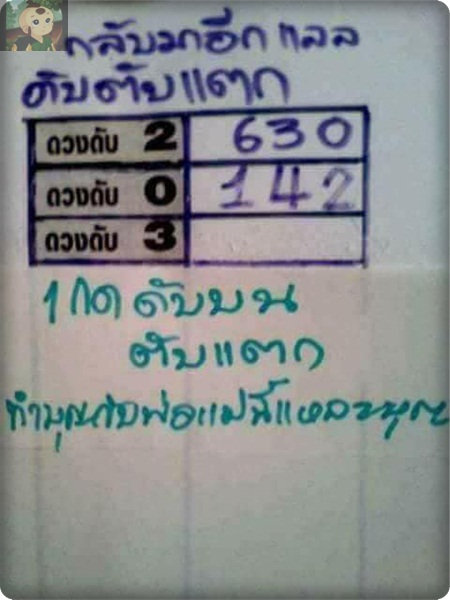 กลับมาอีก แลล
ดับตับแตก
ดวงดับ 2 630
ดวงดับ 0 142
ดวงดับ 3
1 กด ดับบน
ตับแตก
ทำบุญกับพ่อแม่นี้แหละบุญ